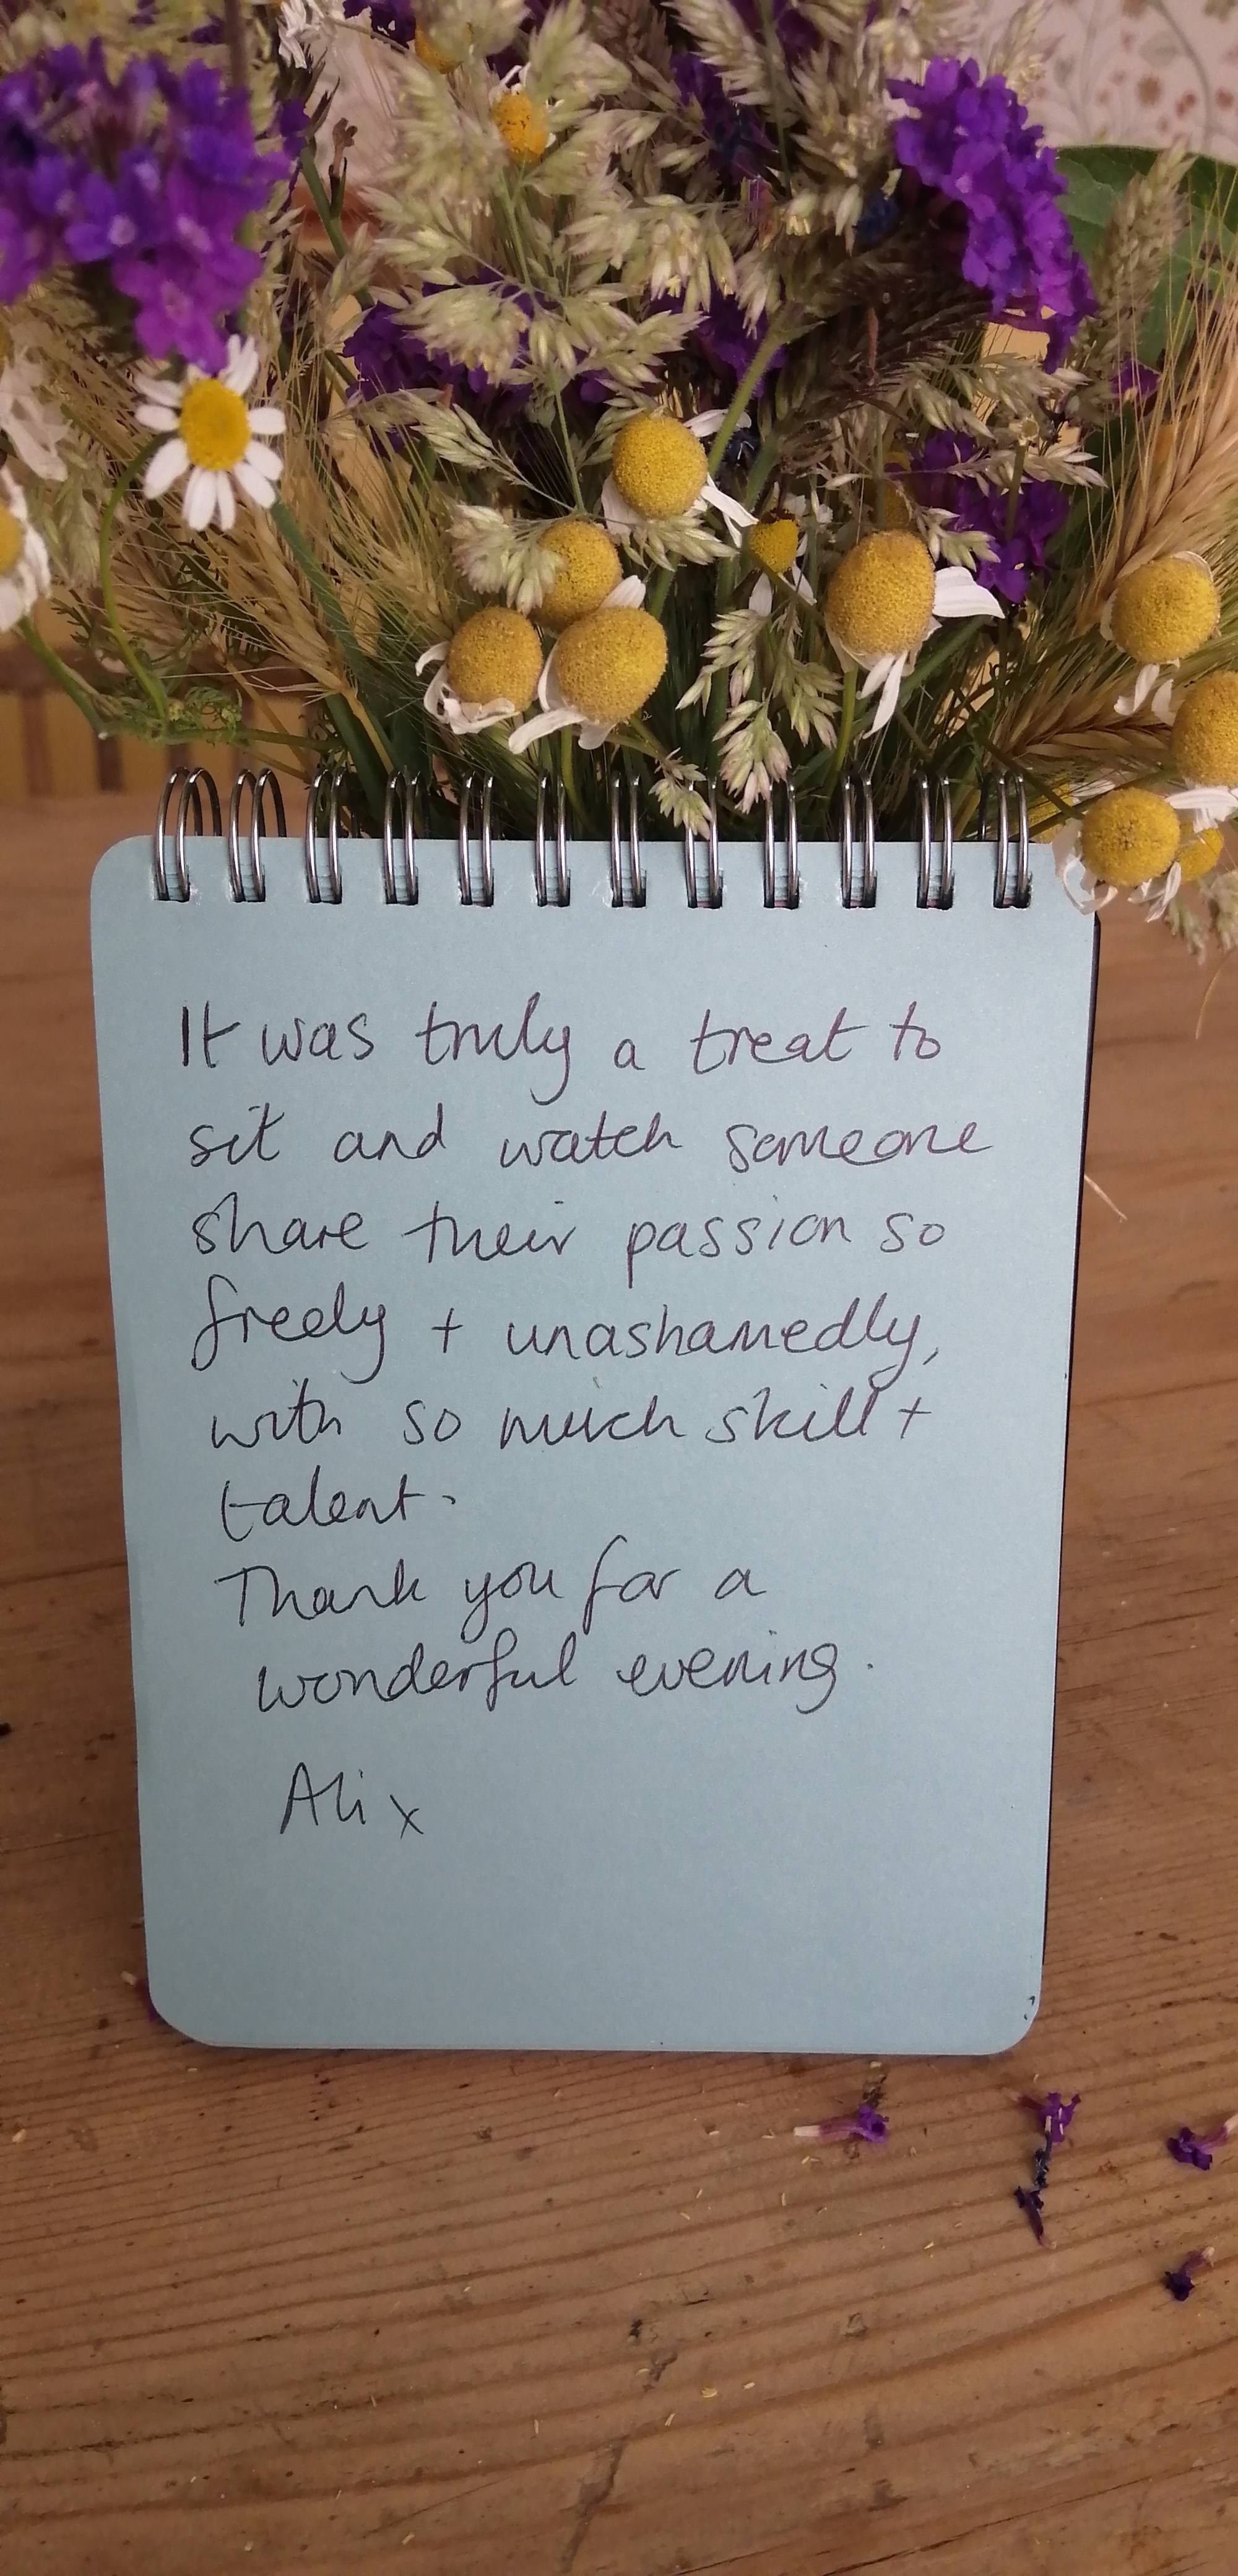 It was truly a treat to
sit and watch someone
share their passion so
freely + unashamedly,
with so much skill +
talent.
Thank you for a
wonderful evening.
Ali x